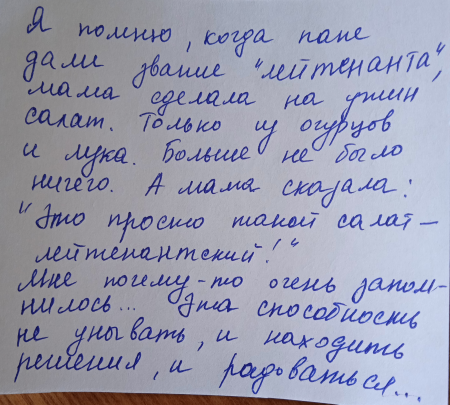 Я помню, когда папе
дали звание "лейтенанта",
мама сделала на ужин
салат. Только из огурцов
и лука. Больше не было
ничего. А мама сказала:
"Это просто такой салат —
лейтенантский!"
Мне почему-то очень запом-
нилось... Эта способность
не унывать, и находить
решения, и радоваться...